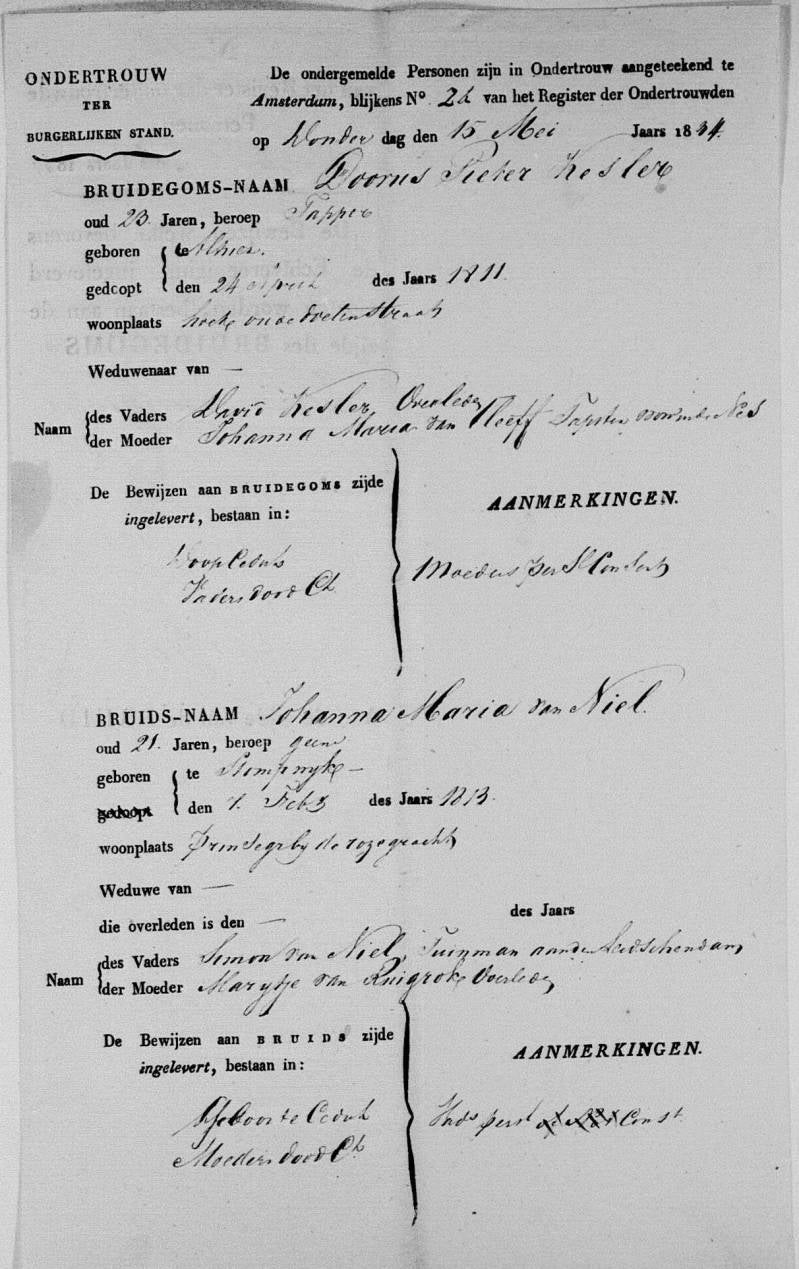 ONDERTROUW
TER
BURGERLIJKEN STAND.
De ondergemelde Personen zijn in Ondertrouw aangeteekend te
Amsterdam, blijkens No. 22 van het Register der Ondertrouwden
op Donder dag den 15 Mei Jaars 1834.
BRUIDEGOMS-NAAM Doorus Pieter Kesler
oud 23. Jaren, beroep Tapper
geboren te Alhier.
gedoopt den 24 April des Jaars 1811.
woonplaats hoek oude doelenstraat
Weduwenaar van —
Naam des Vaders David Kesler Overleden
der Moeder Johanna Maria van Cleeff Tapster
De Bewijzen aan BRUIDEGOMS zijde
ingelevert, bestaan in:
AANMERKINGEN.
Doop Cedul
Vaders dood Cl
Moeders per Sl Consent
BRUIDS-NAAM Johanna Maria van Niel.
oud 21. Jaren, beroep geene
geboren te Stompwyk —
gedoopt den 7. Feb des Jaars 1813.
woonplaats Prinsegr by de rozegracht
Weduwe van —
die overleden is den — des Jaars
Naam des Vaders Simon van Niel, Tuinman aan de Leidschendam
der Moeder Marytje van Ruigrok Overleden
De Bewijzen aan BRUIDS zijde
ingelevert, bestaan in:
AANMERKINGEN.
Geboorte Cedul
Moeders dood Cl
Vads pers Const